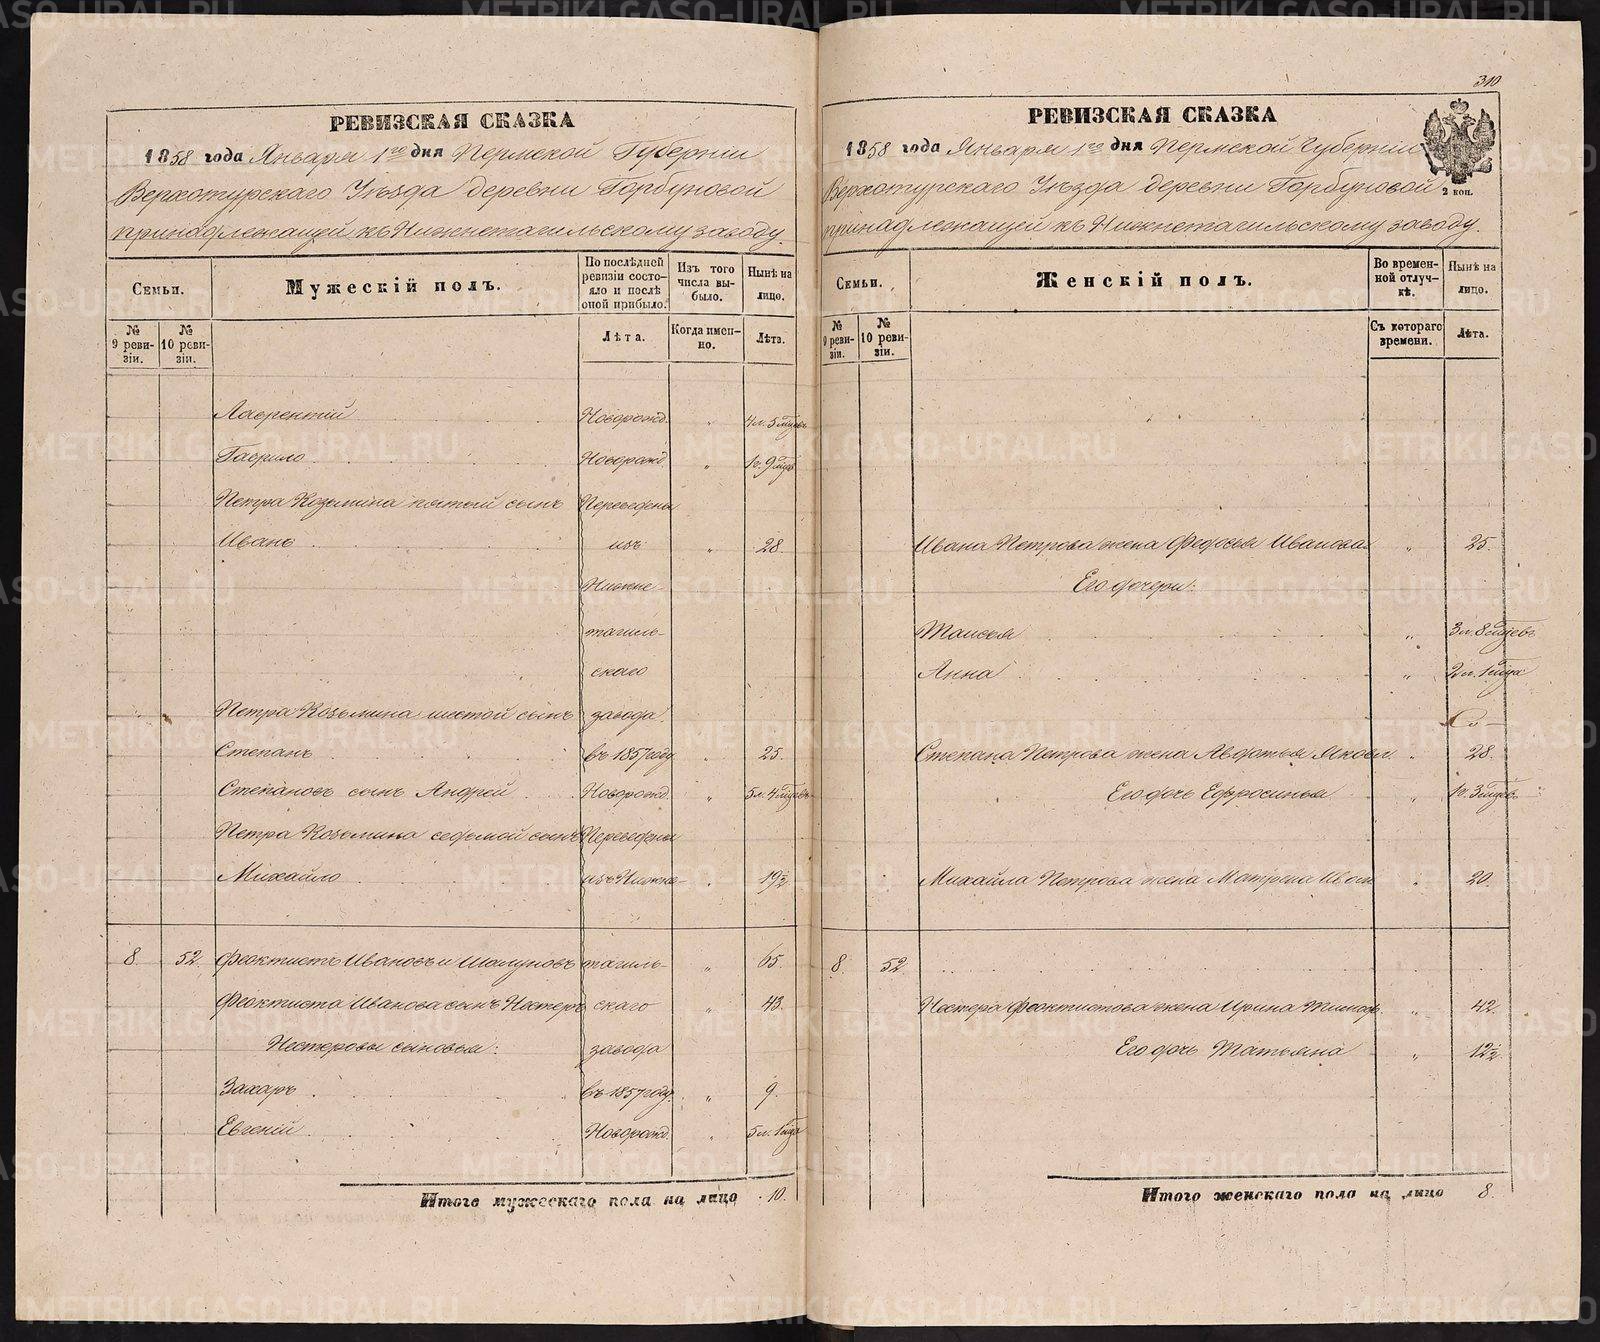 310
РЕВИЗСКАЯ СКАЗКА
1858 года Января 1го дня Пермской Губернiи
Верхотурскаго Уѣзда деревни Горбуновой
принадлежащей къ Нижнетагильскому заводу.
Семьи.
Мужескiй полъ.
По послѣдней ревизiи состояло и послѣ оной прибыло.
Изъ того числа выбыло.
Нынѣ на лицо.
№ 9 ревизiи.
№ 10 ревизiи.
Лѣта.
Когда именно.
Лѣта.
Лаврентiй Новорожд. " 4 л. 5 мцевъ
Гаврило Новорожд. " 1 г. 9 мцъ
Петра Козьмина пятый сынъ Переведены
Иванъ изъ " 28.
Нижне-
тагиль-
скаго
Петра Козьмина шестой сынъ завода
Степанъ въ 1857 году " 25.
Степановъ сынъ Андрей Новорожд. " 5 л. 4 мцевъ
Петра Козьмина седьмой сынъ Переведены
Михайло изъ Нижне- " 19½
8. 52. Феоктистъ Ивановъ и Шалуновъ тагиль- " 65.
Феоктиста Иванова сынъ Нестеръ скаго " 43.
Нестеровы сыновья: завода
Захаръ въ 1857 году " 9.
Евгенiй Новорожд. " 5 л. 1 мца
Итого мужескаго пола на лицо 10.
РЕВИЗСКАЯ СКАЗКА
1858 года Января 1го дня Пермской Губернiи
Верхотурскаго Уѣзда деревни Горбуновой
принадлежащей къ Нижнетагильскому заводу.
2 коп.
Семьи.
Женскiй полъ.
Во временной отлучкѣ.
Нынѣ на лицо.
№ 9 ревизiи.
№ 10 ревизiи.
Съ котораго времени.
Лѣта.
Ивана Петрова жена Федосья Иванова " 25.
Его дочери:
Таисья " 3 л. 8 мцевъ
Анна " 2 л. 1 мца
Степана Петрова жена Авдотья Яковл. " 28.
Его дочь Ефросинья " 1 г. 3 мцевъ
Михайла Петрова жена Матрена Иван " 20.
8. 52.
Нестера Феоктистова жена Ирина Тимоф. " 42.
Его дочь Татьяна " 12½
Итого женскаго пола на лицо 8.
METRIKI.GASO-URAL.RU